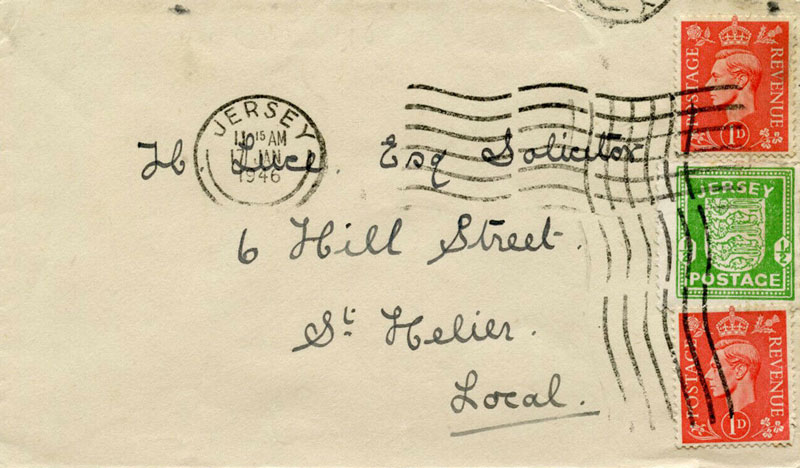 JERSEY
11 15 AM
JAN
1946
H. Luce. Esq Solicitor
6 Hill Street.
St. Helier.
Local.
POSTAGE REVENUE
1D
JERSEY
½ ½
POSTAGE
POSTAGE REVENUE
1D